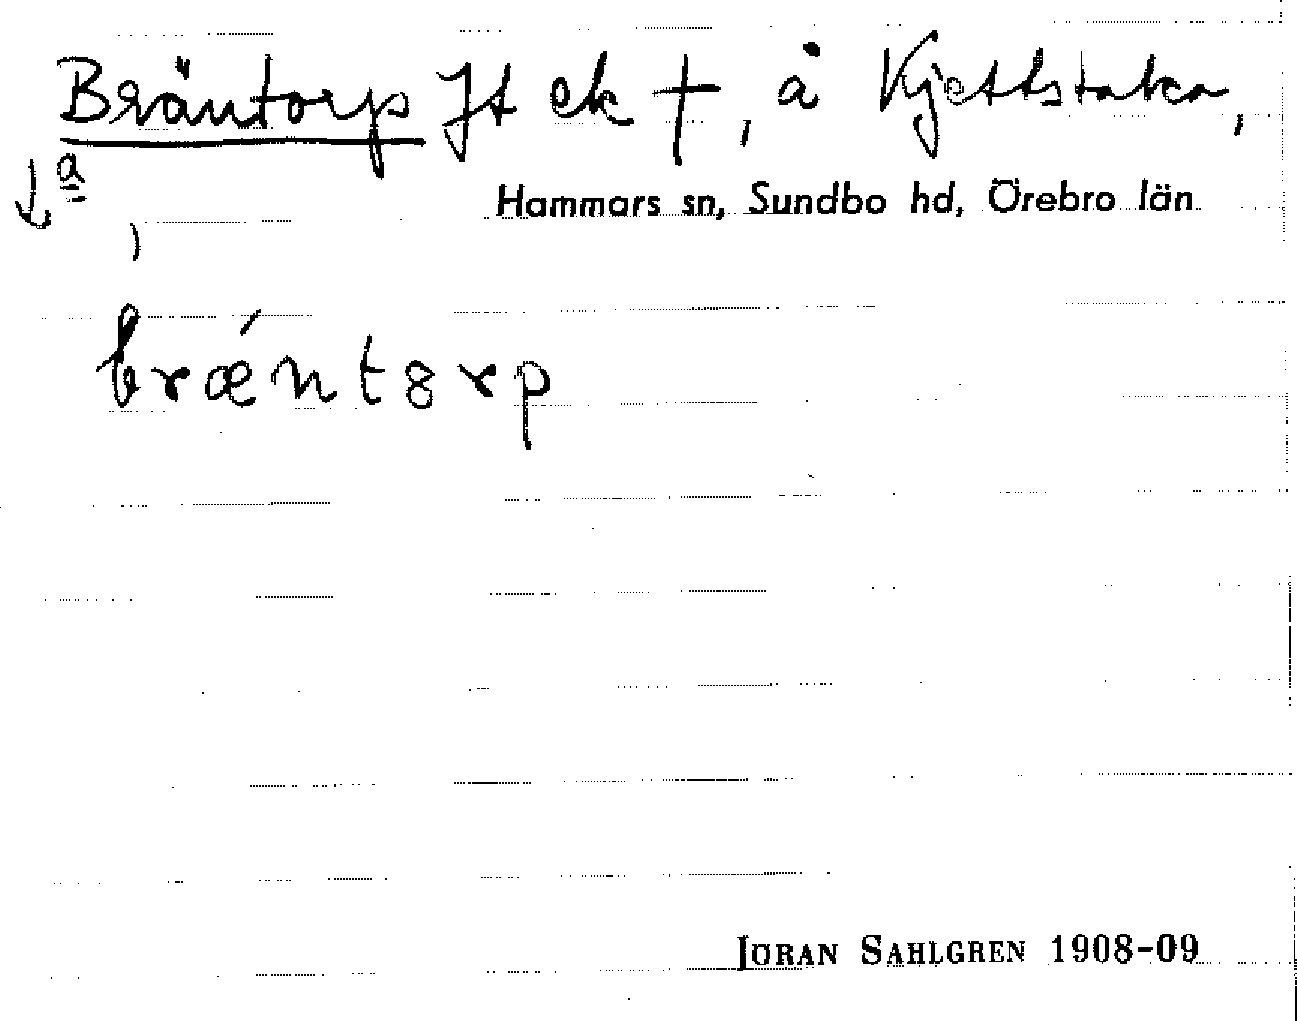 Bräntorp Jt ek †, å Kjettstaka,
↓ a
Hammars sn, Sundbo hd, Örebro län
bræ´nt8rp
JÖRAN SAHLGREN 1908-09